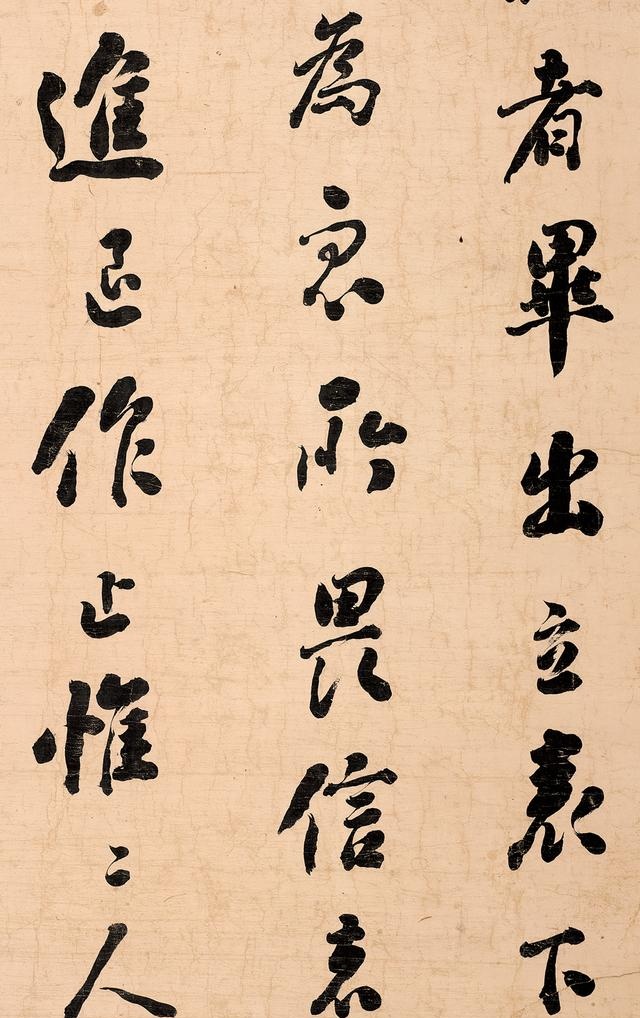 者畢出立表下
為衆所畏信者
進退作止惟二人